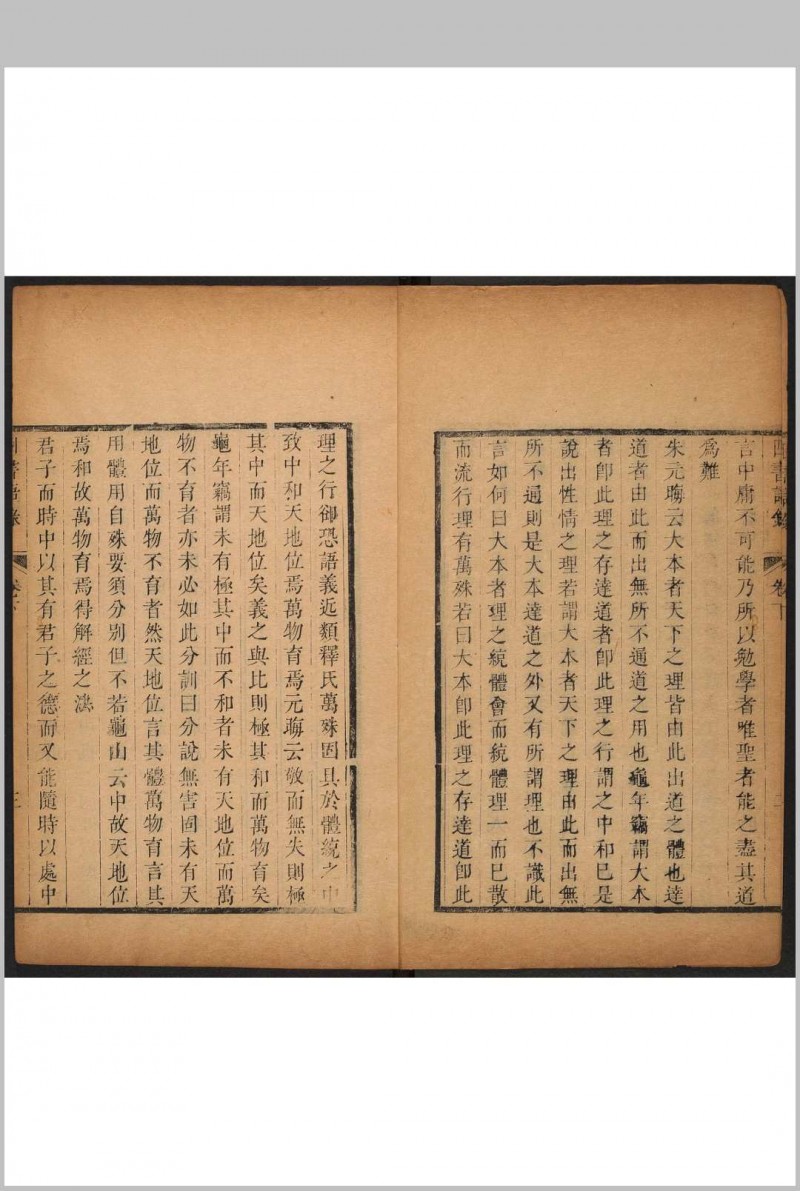 言中庸不可能乃所以勉學者唯聖者能之盡其道
爲難
朱元晦云大本者天下之理皆由此出道之體也達
道者由此而出無所不通道之用也龜年竊謂大本
者卽此理之存達道者卽此理之行謂之中和已是
說出性情之理若謂大本者天下之理由此而出無
所不通則是大本達道之外又有所謂理也不識此
言如何曰大本者理之統體會而統體理一而已散
而流行理有萬殊若曰大本卽此理之存達道卽此
理之行卻恐語義近類釋氏萬殊固具於體統之中
致中和天地位焉萬物育焉元晦云敬而無失則極
其中而天地位矣義之與比則極其和而萬物育矣
龜年竊謂未有極其中而不和者未有天地位而萬
物不育者亦未必如此分訓曰分說無害固未有天
地位而萬物不育者然天地位言其體萬物育言其
用體用自殊要須分別但不若龜山云中故天地位
焉和故萬物育焉得解經之法
君子而時中以其有君子之德而又能隨時以處中
卷下
三